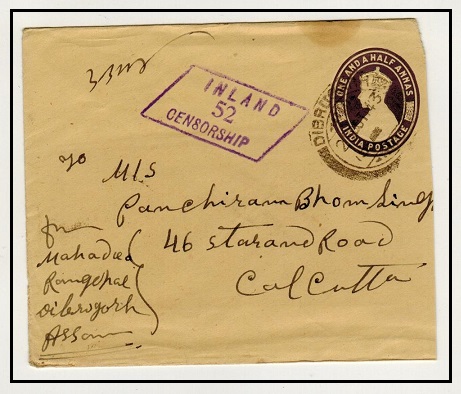 INLAND
52
CENSORSHIP
ONE AND A HALF ANNAS
INDIA POSTAGE
DIBR
To
M/S
Panchiram Bhom Singh
46 Starand Road
Calcutta
from
Mahadeo
Ramgopal
Dibrogorh
Assam